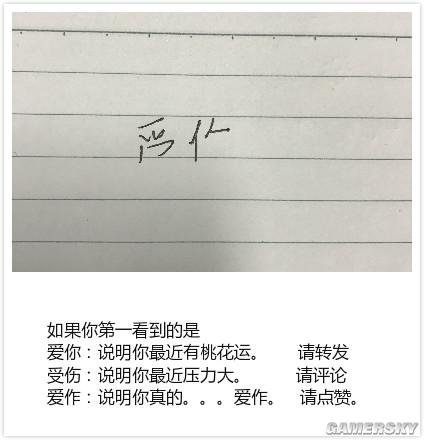 如果你第一看到的是
爱你：说明你最近有桃花运。 请转发
受伤：说明你最近压力大。 请评论
爱作：说明你真的。。。爱作。 请点赞。
GAMERSKY